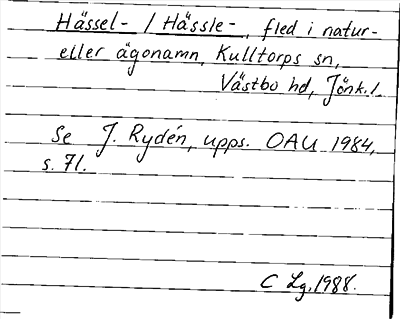 Hässel- / Hässle-, fled i natur-
eller ägonamn, Kulltorps sn,
Västbo hd, Jönk. l.
Se J. Rydén, upps. OAU 1984,
s. 71.
C Lg. 1988.